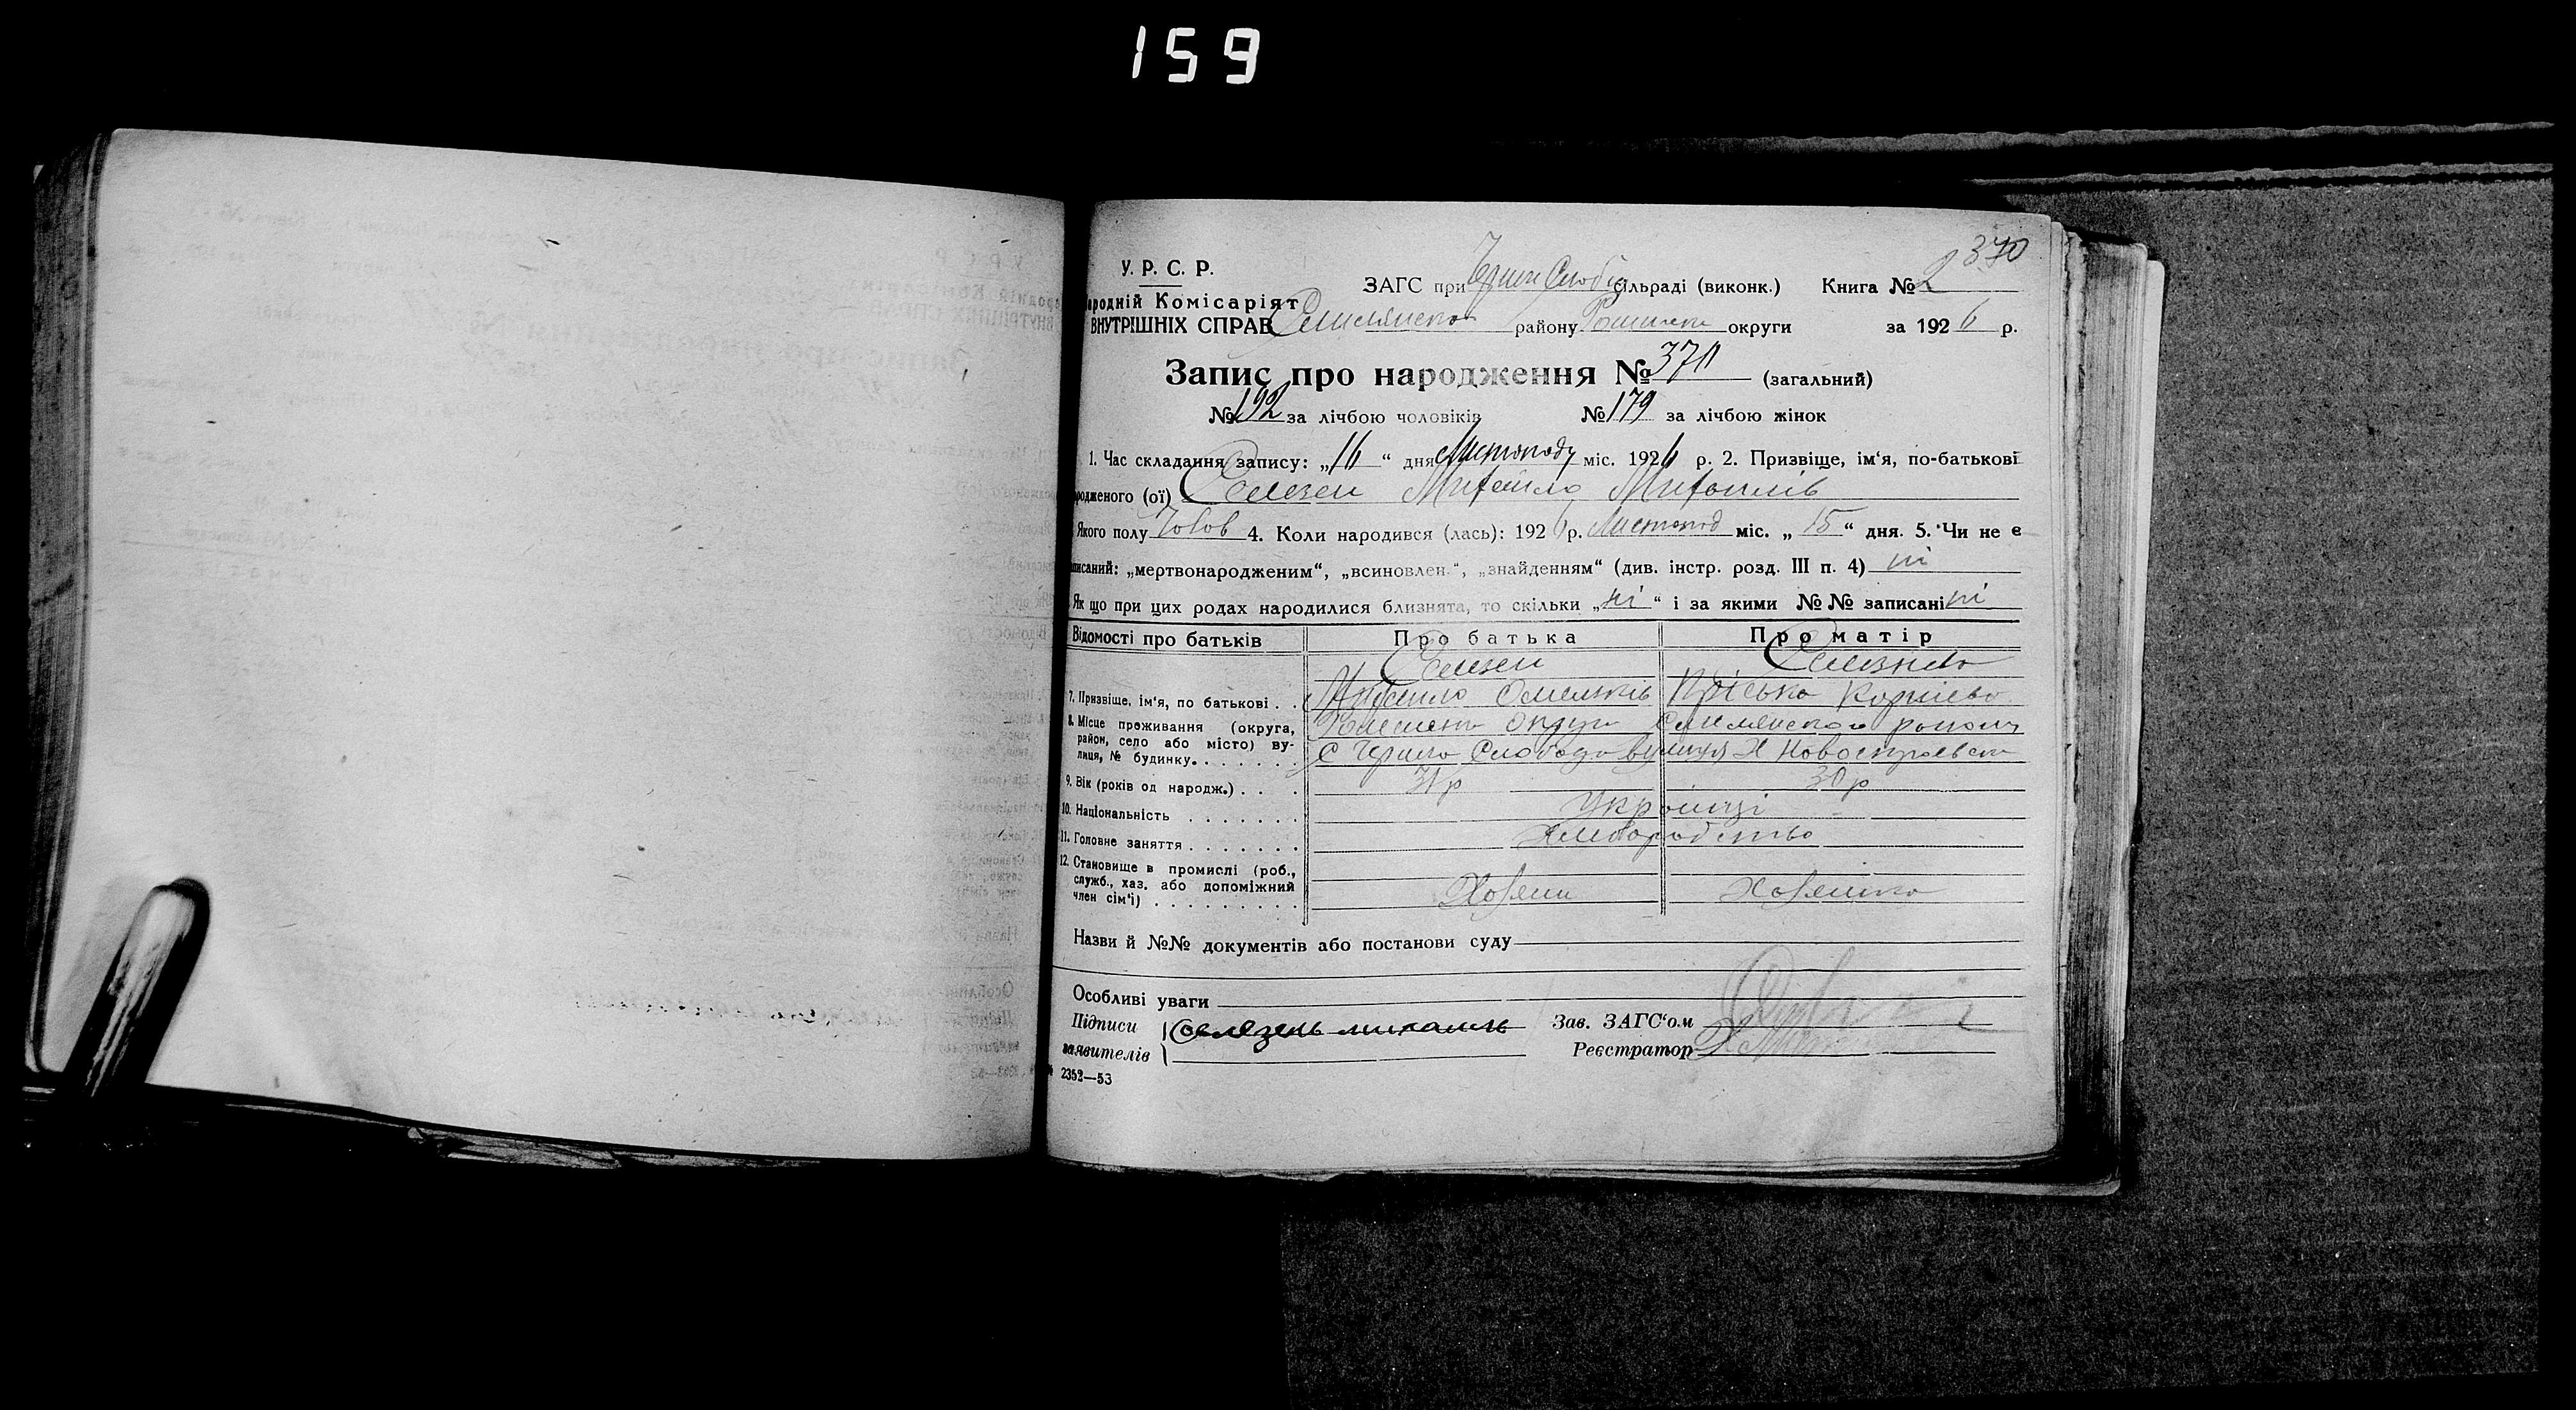 159
370
У. Р. С. Р.
ЗАГС при Черн Слобід сільраді (виконк.) Книга № 2
народній Комісаріят
ВНУТРІШНІХ СПРАВ району округи за 1926 р.
Запис про народження № 370 (загальний)
№ 192 за лічбою чоловіків № 179 за лічбою жінок
1. Час складання запису: „16“ дня Листопаду міс. 1926 р. 2. Призвіще, ім‘я, по-батькові
родженого (ої) Селезен Михайло Михайлів
Якого полу Чолов 4. Коли народився (лась): 1926 р. Листопад міс. „15“ дня. 5. Чи не є
писаний: „мертвонародженим“, „всиновлен.“, „знайденням“ (див. інстр. розд. III п. 4) ні
Як що при цих родах народилися близнята, то скільки „ні“ і за якими №№ записані ні
Відомості про батьків Про батька Про матір
Селезен Селезнева
7. Призвіще, ім‘я, по батькові . . Михайло Омельків Пріська Корнієва
8. Місце проживання (округа, округи району
район, село або місто) ву- С Чорна Слобода вулиця
лиця, № будинку. . . . . . .
9. Вік (років од народж.) . . . 31 р 30 р
10. Національність . . . . . . . Українці
11. Головне заняття . . . . . . . Хлібородство
12. Становище в промислі (роб.,
служб., хаз. або допоміжний
член сім‘ї) . . . . . . . . . Хозяин Хозяйка
Назви й №№ документів або постанови суду
Особливі уваги
Підписи Селезень Зав. ЗАГС‘ом
заявителів Реєстратор
2352—53